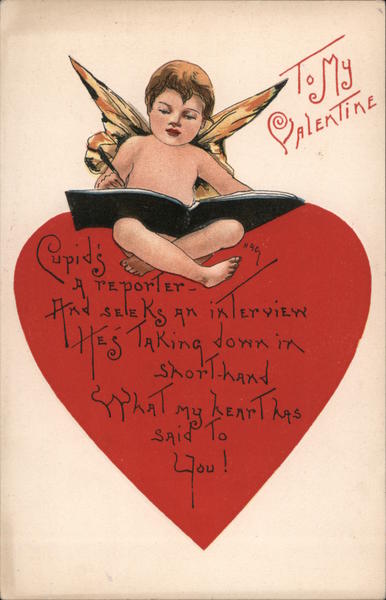 To My
Valentine
Cupid's
a reporter—
And seeks an interview
He's Taking down in
short-hand
What my heart has
said To
You!